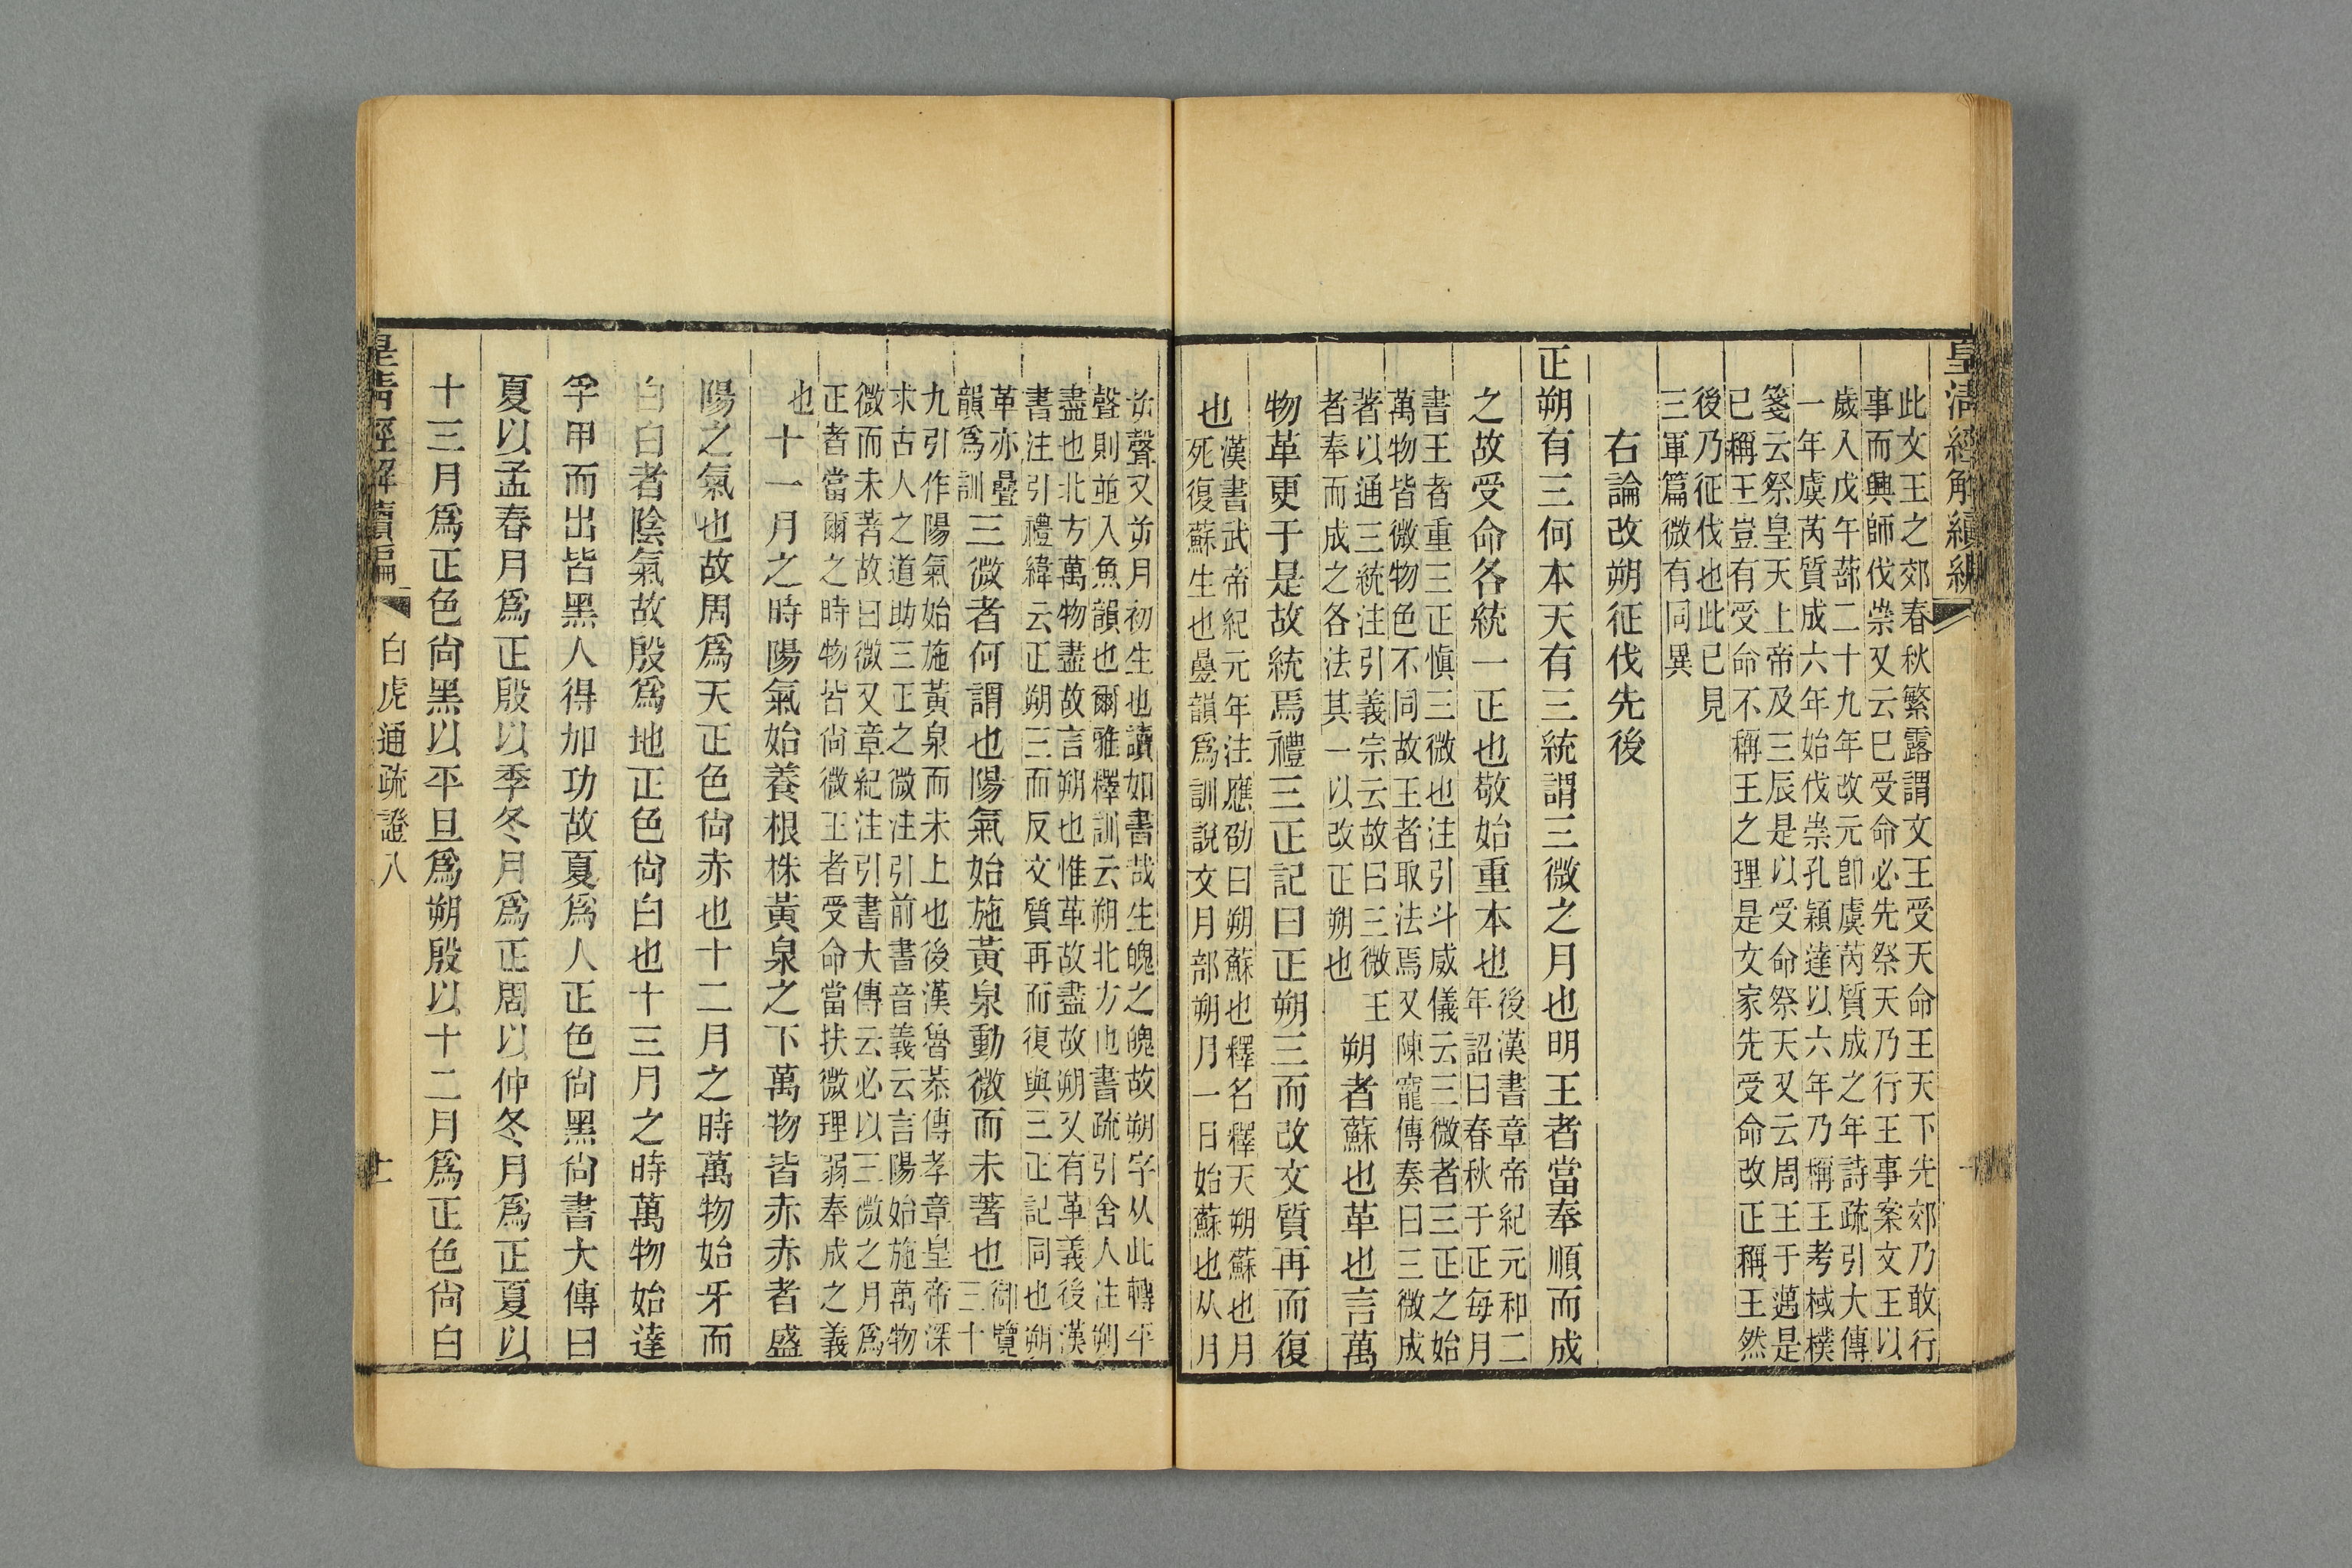 皇清經解續編
此文王之郊春秋繁露謂文王受天命王天下先郊乃敢行
事而興師伐崇又云已受命必先祭天乃行王事案文王以
歲入戊午蔀二十九年改元卽虞芮質成之年詩疏引大傳
一年虞芮質成六年始伐崇孔穎達以六年乃稱王考棫樸
箋云祭皇天上帝及三辰是以受命祭天又云周王于邁是
已稱王豈有受命不稱王之理是文家先受命改正稱王然
後乃征伐也此已見
三軍篇微有同異
右論改朔征伐先後
正朔有三何本天有三統謂三微之月也明王者當奉順而成
之故受命各統一正也敬始重本也
後漢書章帝紀元和二
年詔曰春秋于正每月
書王者重三正愼三微也注引斗威儀云三微者三正之始
萬物皆微物色不同故王者取法焉又陳寵傳奏曰三微成
著以通三統注引義宗云故曰三微王
者奉而成之各法其一以改正朔也
朔者蘇也革也言萬
物革更于是故統焉禮三正記曰正朔三而改文質再而復
也
漢書武帝紀元年注應劭曰朔蘇也釋名釋天朔蘇也月
死復蘇生也疊韻爲訓說文月部朔月一日始蘇也从月
屰聲又屰月初生也讀如書哉生魄之魄故朔字从此轉平
聲則並入魚韻也爾雅釋訓云朔北方也書疏引舍人注朔
盡也北方萬物盡故言朔也惟革故盡故朔又有革義後漢
書注引禮緯云正朔三而反文質再而復與三正記同也朔
革亦疊
韻爲訓
三微者何謂也陽氣始施黃泉動微而未著也
御覽
三十
九引作陽氣始施黃泉而未上也後漢魯恭傳孝章皇帝深
求古人之道助三正之微注引前書音義云言陽始施萬物
微而未著故曰微又章紀注引書大傳云必以三微之月爲
正者當爾之時物皆尙微王者受命當扶微理弱奉成之義
也
十一月之時陽氣始養根株黃泉之下萬物皆赤赤者盛
陽之氣也故周爲天正色尙赤也十二月之時萬物始牙而
白白者陰氣故殷爲地正色尙白也十三月之時萬物始達
孚甲而出皆黑人得加功故夏爲人正色尙黑尙書大傳曰
夏以孟春月爲正殷以季冬月爲正周以仲冬月爲正夏以
十三月爲正色尙黑以平旦爲朔殷以十二月爲正色尙白
皇清經解續編
白虎通疏證八